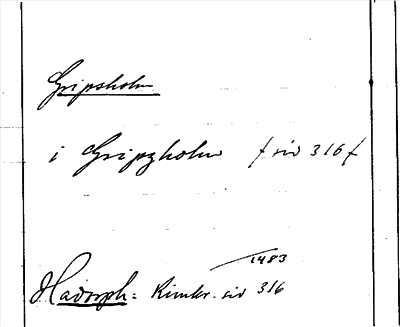 Gripsholm
i Gripzholm f sid 316 f
1483
Hadorph: Rimkr. sid 316